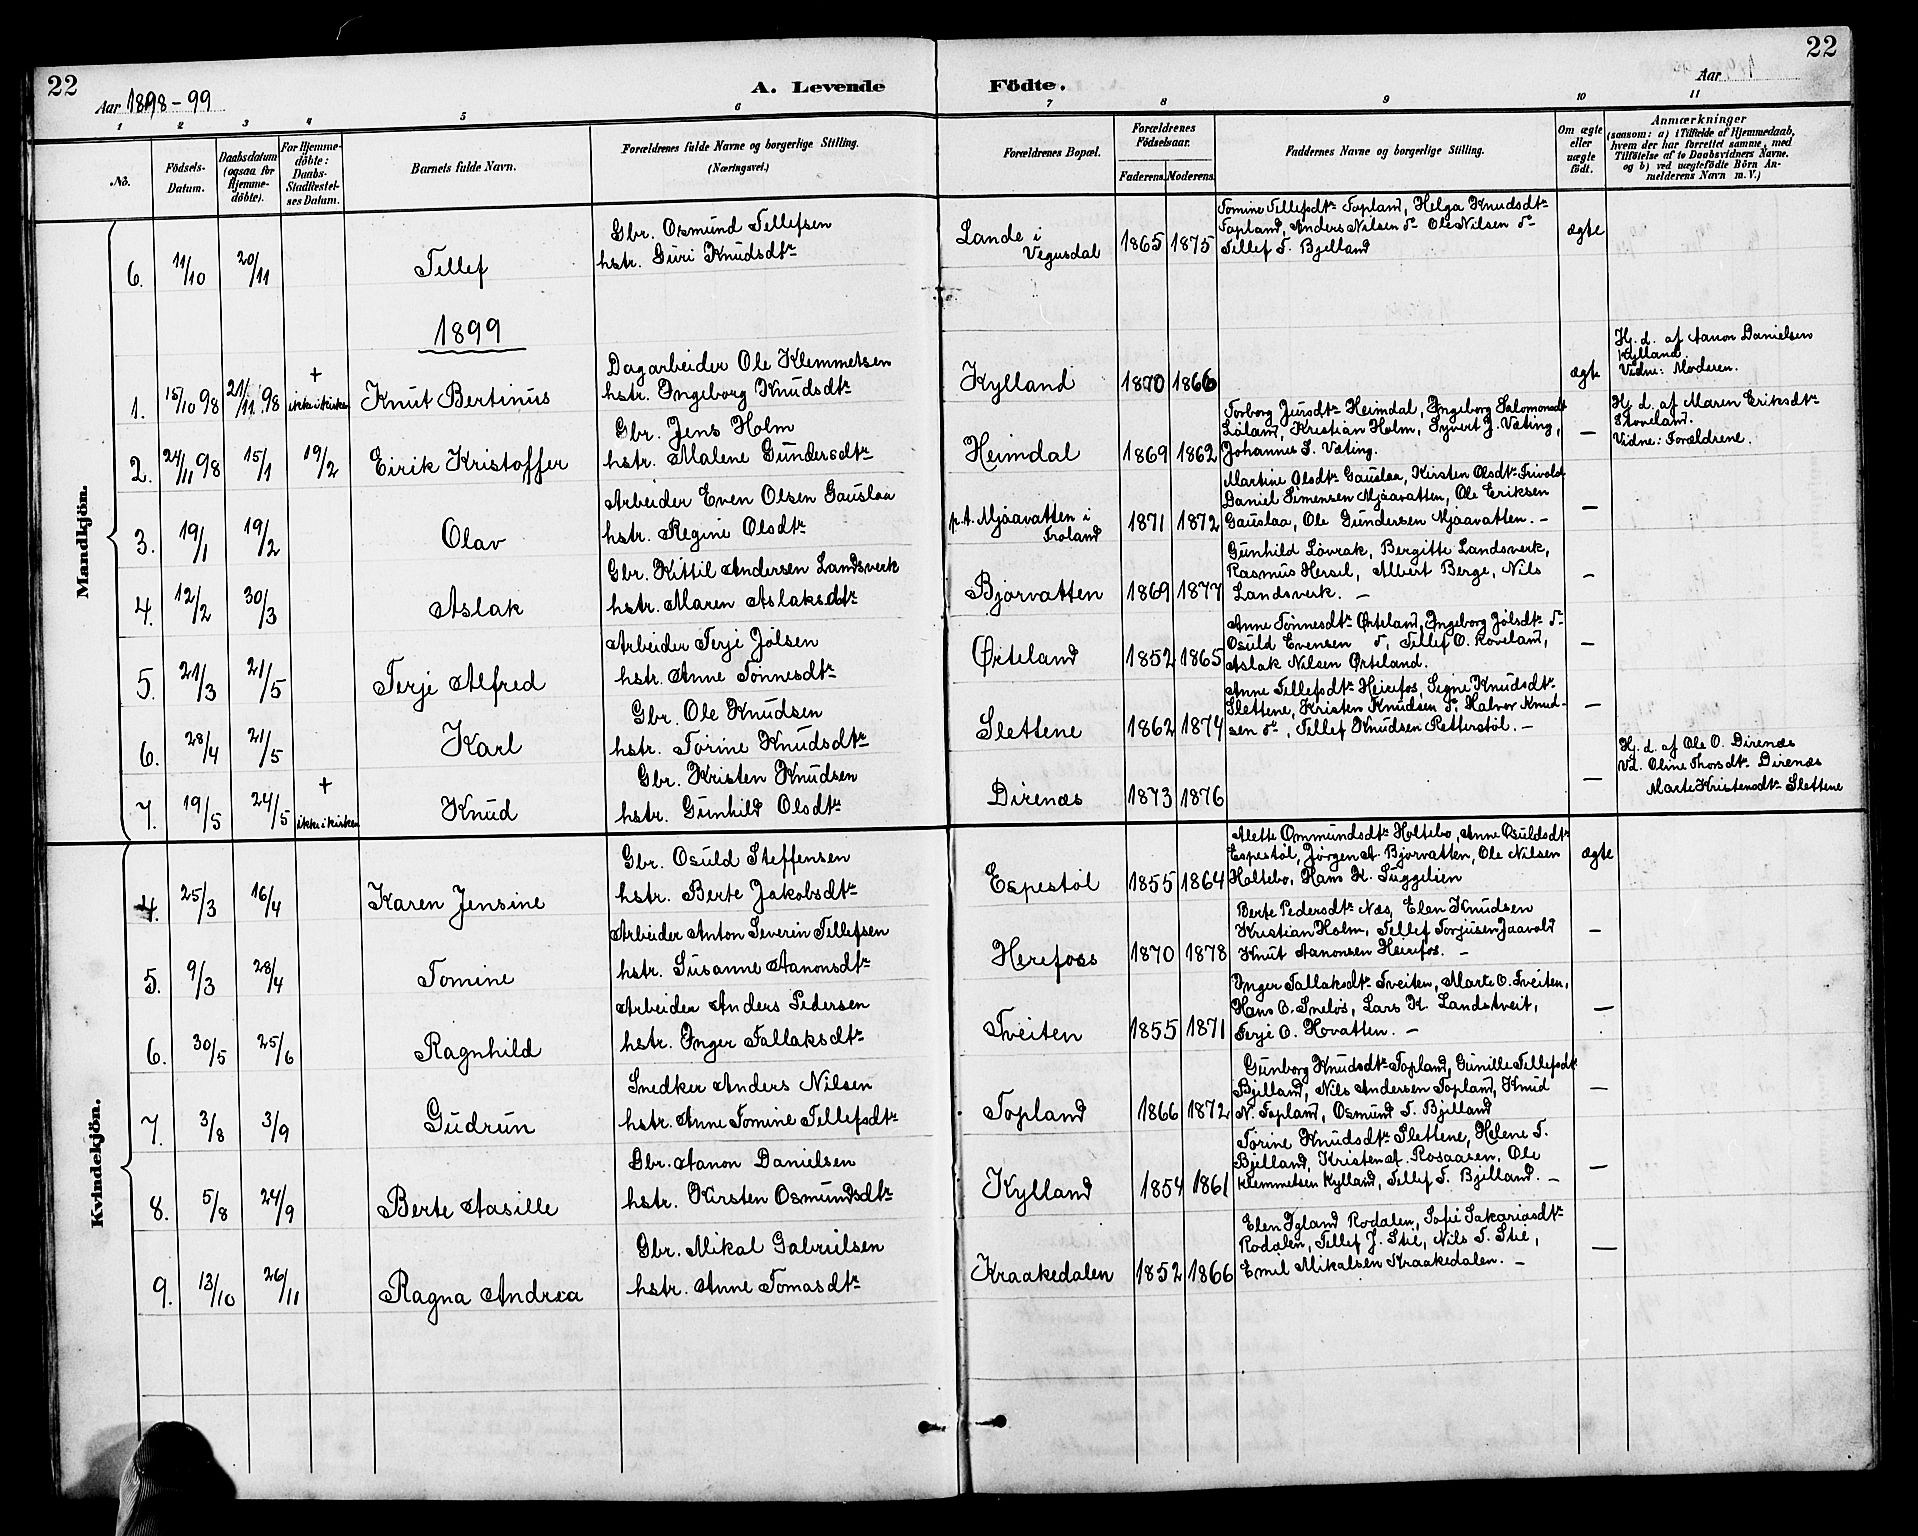 22
22
Aar 1898-99
A. Levende
Födte.
Aar 1
1 2 3 4 5 6 7 8 9 10 11
No.
Födsels-Datum.
Daabsdatum (ogsaa for Hjemme-döbte).
For Hjemme-döbte: Daabs-Stadfæstelses Datum.
Barnets fulde Navn.
Forældrenes fulde Navne og borgerlige Stilling. (Næringsvei.)
Forældrenes Bopæl.
Forældrenes Födselsaar.
Faderens. Moderens.
Faddernes Navne og borgerlige Stilling.
Om ægte eller uægte födt.
Anmærkninger
(saasom: a) i Tilfælde af Hjemmedaab, hvem der har forrettet samme, med Tilföielse af to Daabsvidners Navne. og b) ved uægtefödte Börn Anmelderens Navn m. V.)
Mandkjön.
6. 11/10 20/11 Tellef
Gbr. Osmund Tellefsen
hstr. Guri Knudsdtr
Lande i Vegusdal 1865 1875
Tomine Tellefsdtr Topland, Helga Knudsdtr
Topland, Anders Nilsen T. Ole Nilsen T.
Tellef T. Bjelland
ægte
1899
1. 15/10 98 21/11 98 + ikke i kirken Knut Bertinus
Dagarbeider Ole Klemmetsen
hstr. Ingeborg Knudsdtr
Kylland 1870 1866 ægte
Hj. d. af Aanon Danielsen
Kylland.
Vidne: Moderen.
2. 24/11 98 15/1 19/2 Eirik Kristoffer
Gbr. Jens Holm
hstr. Malene Gundersdtr
Heimdal 1869 1862
Torborg Jursdtr Heimdal, Ingeborg Salomonsdt
Løland, Kristian Holm, Syvert J. Væting,
Johannes S. Væting.
—
Hj. d. af Maren Eriksdtr
Stoveland.
Vidne: Forældrene.
3. 19/1 19/2 Olav
Arbeider Even Olsen Gauslaa
hstr. Regine Olsdtr
p.t. Mjaavatten i Froland 1871 1872
Martine Olsdtr Gauslaa, Kirsten Olsdtr Trivold
Daniel Simensen Mjaavatten, Ole Eriksen
Gauslaa, Ole Gundersen Mjaavatten. —
—
4. 12/2 30/3 Aslak
Gbr. Kittil Andersen Landsverk
hstr. Maren Aslaksdtr
Bjorvatten 1869 1877
Gunhild Løvrak, Bergitte Landsverk,
Rasmus Hersel, Albert Berge, Nils
Landsverk. —
—
5. 21/3 21/5 Terje Alfred
Arbeider Terje Jølsen
hstr. Anne Tønnesdtr
Ørteland 1852 1865
Anne Tønnesdtr Ørteland, Ingeborg Jølsdtr T.
Osuld Evensen T, Tellef O. Roveland,
Aslak Nilsen Ørteland.
—
6. 28/4 21/5 Karl
Gbr. Ole Knudsen
hstr. Tørine Knudsdtr
Slettene 1862 1874
Anne Tellefsdtr Heirefos, Signe Knudsdtr
Slettene, Kristen Knudsen T. Halvor Knud-
sen T., Tellef Knudsen Retterstøl. —
—
7. 19/5 24/5 + ikke i kirken Knud
Gbr. Kristen Knudsen
hstr. Gunhild Olsdtr
Direnæs 1873 1876 —
Hj. d. af Ole O. Direnæs
Vd. Oline Thorsdtr Direnæs
Marte Kristensdtr Slettene
Kvindekjön.
4. 25/3 16/4 Karen Jensine
Gbr. Osuld Steffensen
hstr. Berte Jakobsdtr
Espestøl 1855 1864
Alette Ommundsdtr Holtebo, Anne Osuldsdtr
Espestøl, Jørgen A. Bjorvatten, Ole Nilsen
Holtebo, Hans K. Suggelien
ægte
5. 9/3 28/4 Tomine
Arbeider Anton Severin Tellefsen
hstr. Susanne Aanonsdtr
Herefoss 1870 1878
Berte Pedersdtr Næs, Elen Knudsen
Kristian Holm, Tellef Torjusen Jaavold
Knut Aanonsen Heirefos. —
—
6. 30/5 25/6 Ragnhild
Arbeider Anders Pedersen
hstr. Inger Tallaksdtr
Tveiten 1855 1871
Inger Tallaksdtr Tveiten, Marte O. Tveiten,
Hans O. Sneløs, Lars K. Landstveit,
Terje O. Hovatten. —
—
7. 3/8 3/9 Gudrun
Snedker Anders Nilsen
hstr. Anne Tomine Tellefsdtr
Topland 1866 1872
Gunborg Knudsdtr Topland, Gunille Tellefsdt
Bjelland, Nils Andersen Topland, Knud
N. Topland, Osmund T. Bjelland
—
8. 5/8 24/9 Berte Aasille
Gbr. Aanon Danielsen
hstr. Kirsten Osmundsdtr
Kylland 1854 1861
Tørine Knudsdtr Slettene, Helene T.
Bjelland, Kristen A. Rosaasen, Ole
Klemmetsen Kylland, Tellef T. Bjelland. —
—
9. 13/10 26/11 Ragna Andrea
Gbr. Mikal Gabrielsen
hstr. Anne Tomasdtr
Kraakedalen 1852 1866
Elen Igland Rodalen, Sofie Sakariasdtr
Rodalen, Tellef J. Stie, Nils T. Stie,
Emil Mikalsen Kraakedalen. —
—